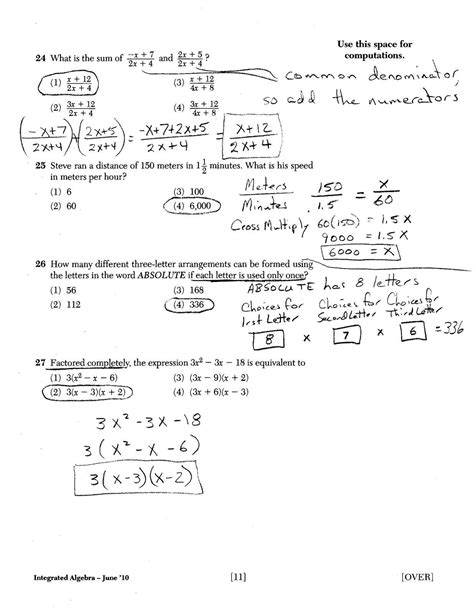 Use this space for
computations.
24 What is the sum of (−x + 7)/(2x + 4) and (2x + 5)/(2x + 4)?
(1) (x + 12)/(2x + 4) (3) (x + 12)/(4x + 8)
(2) (3x + 12)/(2x + 4) (4) (3x + 12)/(4x + 8)
common denominator,
so add the numerators
(−x+7)/(2x+4) + (2x+5)/(2x+4) = (−x+7+2x+5)/(2x+4) = (x+12)/(2x+4)
25 Steve ran a distance of 150 meters in 1 1/2 minutes. What is his speed
in meters per hour?
(1) 6 (3) 100
(2) 60 (4) 6,000
Meters/Minutes 150/1.5 = x/60
Cross Multiply 60(150) = 1.5 x
9000 = 1.5 x
6000 = x
26 How many different three-letter arrangements can be formed using
the letters in the word ABSOLUTE if each letter is used only once?
(1) 56 (3) 168
(2) 112 (4) 336
ABSOLUTE has 8 letters
Choices for Choices for Choices for
1rst Letter Second Letter Third Letter
8 x 7 x 6 = 336
27 Factored completely, the expression 3x² − 3x − 18 is equivalent to
(1) 3(x² − x − 6) (3) (3x − 9)(x + 2)
(2) 3(x − 3)(x + 2) (4) (3x + 6)(x − 3)
3x² -3x -18
3(x² -x -6)
3(x-3)(x-2)
Integrated Algebra – June '10 [11] [OVER]